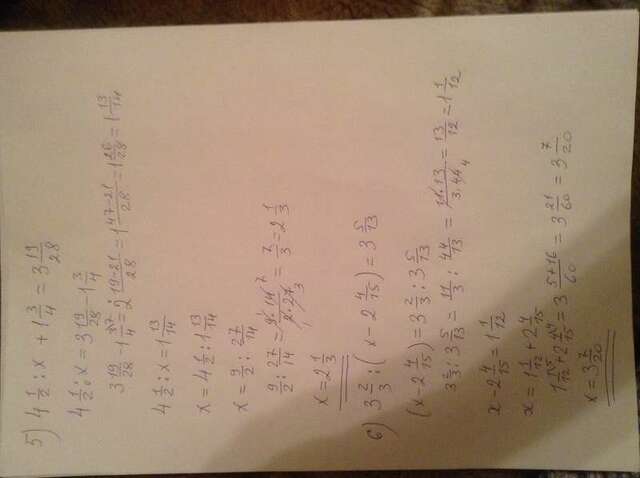 5) 4 1/2 : x + 1 3/4 = 3 19/28
4 1/2 : x = 3 19/28 - 1 3/4
3 19/28 - 1 3/4 = 2 19-21/28 = 1 47-21/28 = 1 26/28 = 1 13/14
4 1/2 : x = 1 13/14
x = 4 1/2 : 1 13/14
x = 9/2 : 27/14
9/2 : 27/14 = 9·14/2·27 = 7/3 = 2 1/3
x = 2 1/3
6) 3 2/3 : ( x - 2 4/15 ) = 3 5/13
(x - 2 4/15) = 3 2/3 : 3 5/13
3 2/3 : 3 5/13 = 11/3 : 44/13 = 11·13/3·44 = 13/12 = 1 1/12
x - 2 4/15 = 1 1/12
x = 1 1/12 + 2 4/15
1 1/12 + 2 4/15 = 3 5+16/60 = 3 21/60 = 3 7/20
x = 3 7/20